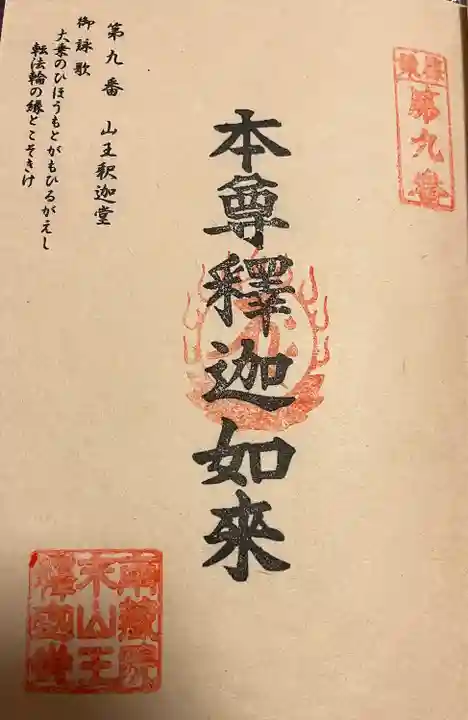 第九番
本尊釋迦如來
第九番　山王釈迦堂
御詠歌
大乗のひほうもとがもひるがえし
転法輪の縁とこそきけ
南藏院
末山王
釋迦堂